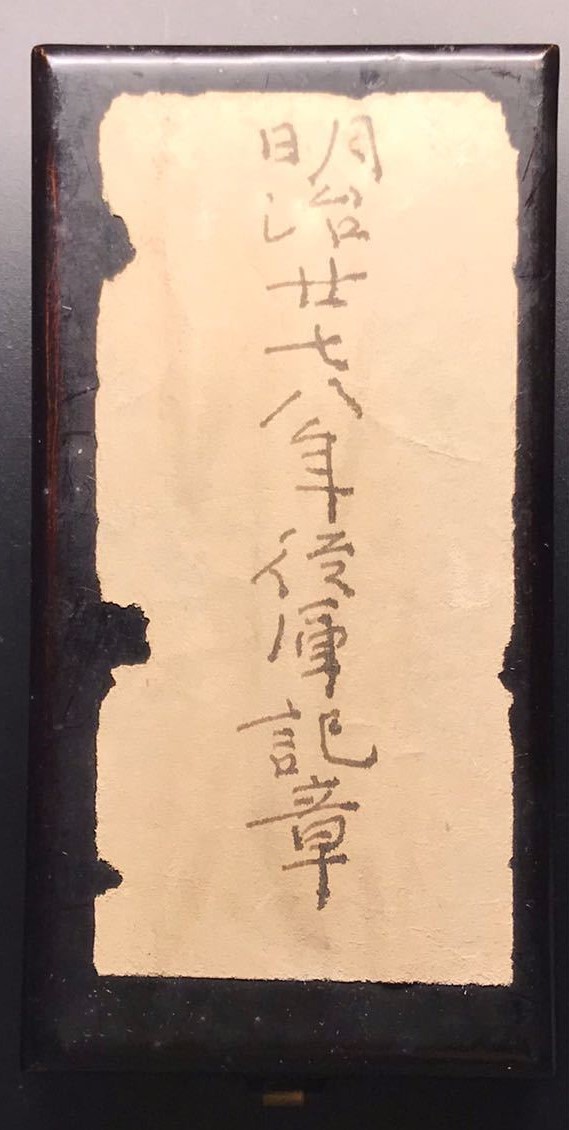 明治廿七八年従軍記章